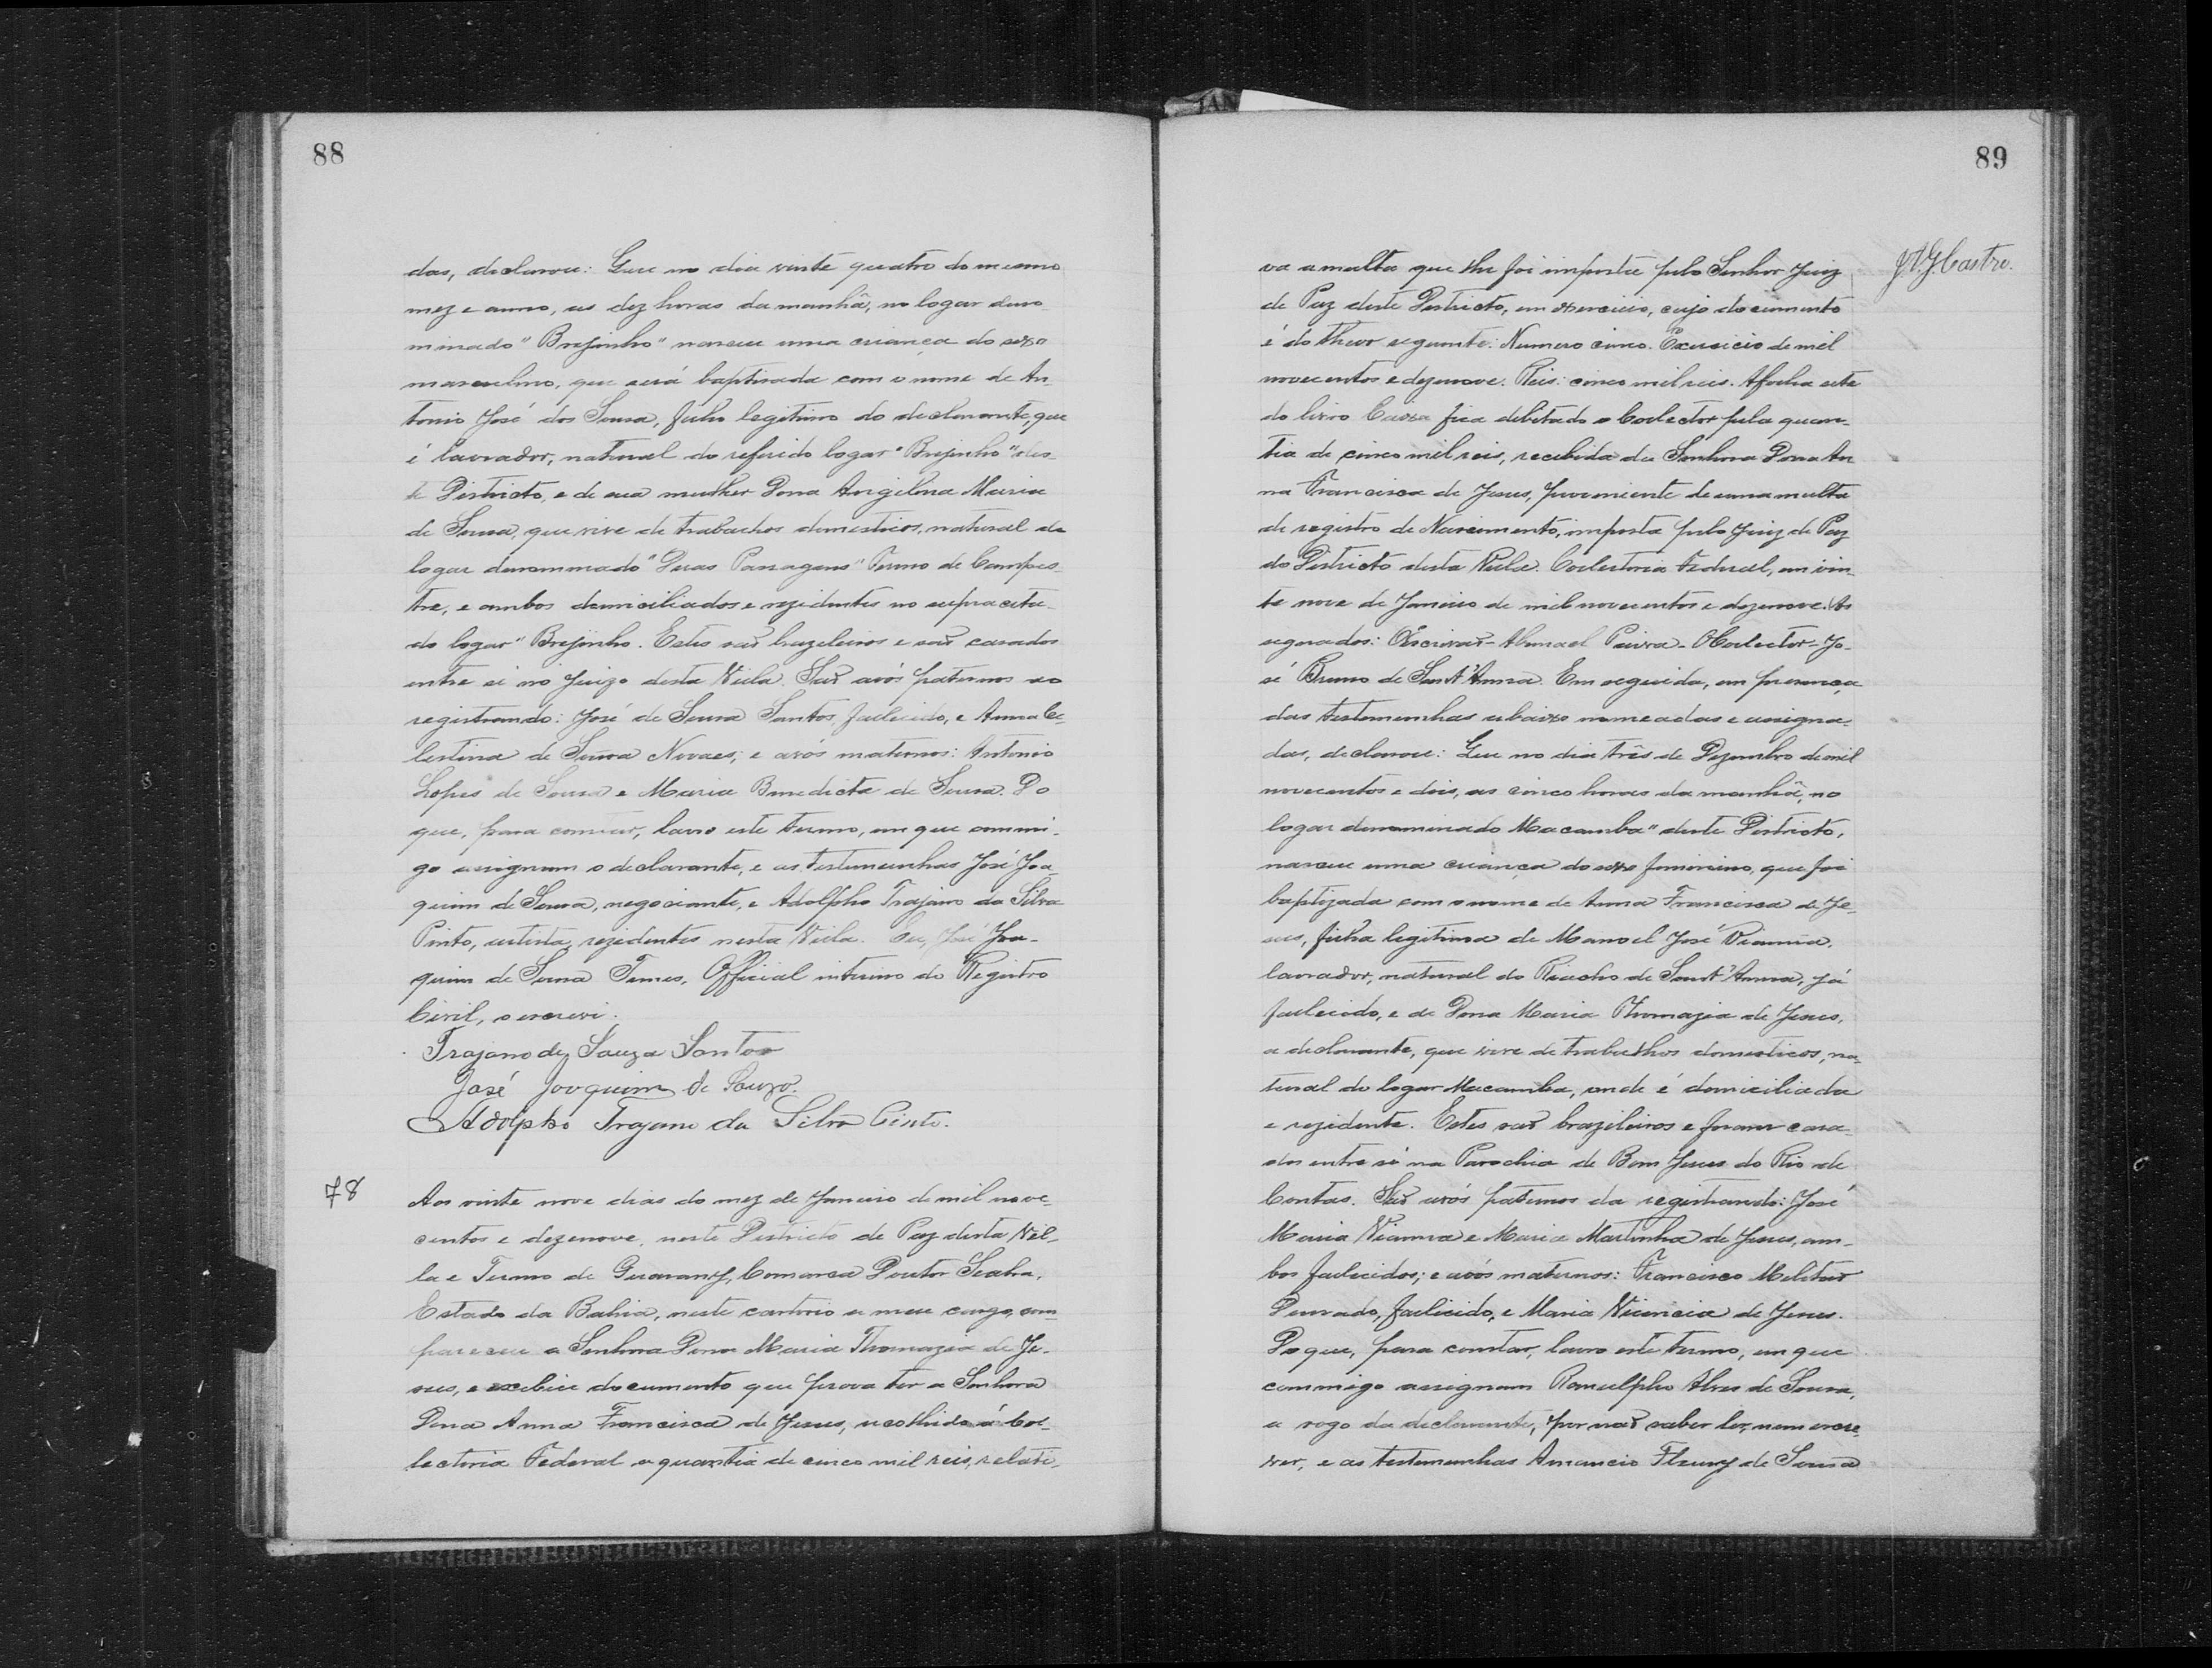 88
das, declarou: Que no dia vinte quatro do mesmo
mez e anno, as dez horas da manhã, no logar deno
minado "Brejinho" nasceu uma criança do sexo
masculino, que será baptisada com o nome de An-
tonio José dos Sousa, filho legitimo do declarante, que
é lavrador, natural do referido logar "Brejinho" des-
te Districto, e de sua mulher Dona Angelina Maria
de Sousa, que vive de trabalhos domesticos, natural do
logar denominado "Duas Passagens" Termo de Campes-
tre, e ambos domiciliados e rezidentes no supracita-
do logar "Brejinho. Estes são brazileiros e são casados
entre si no Juizo desta Villa. São avós paternos do
registrando: José de Sousa Santos, fallecido, e Anna Ce-
lestina de Sousa Novaes; e avós maternos: Antonio
Lopes de Sousa e Maria Benedicta de Sousa. Do
que, para constar, lavro este termo, em que commi-
go assignam o declarante, e as testemunhas José Joa-
quim de Sousa, negociante, e Adolpho Trajano da Silva
Pinto, artista, rezidentes nesta Villa. Eu, José Joa-
quim de Sousa Official interino do Registro
Civil, o escrevi.
Trajano de Souza Santos
José Joaquim de Souza.
Adolpho Trajano da Silva Pinto.
78
Aos vinte nove dias do mez de Janeiro de mil nove-
centos e dezenove, neste Districto de Paz desta Vil-
la e Termo de Guarany, Comarca Doutor Seabra,
Estado da Bahia, neste cartorio a meu cargo, com-
pareceu a Senhora Dona Maria Thomazia de Je-
sus, e exebiu documento que prova ter a Senhora
Dona Anna Francisca de Jesus, recolhido á Col-
lectoria Federal a quantia de cinco mil reis, relati-
89
J.A.G. Castro.
va a multa que lhe foi imposta pelo Senhor Juiz
de Paz deste Districto, em exercicio, cujo documento
é do theor seguinte: Numero cinco. Exercicio de mil
novecentos e dezenove. Reis: cinco mil reis. A folha sete
do livro Caixa fica debitado o Collector pela quan-
tia de cinco mil reis, recebida da Senhora Dona An
na Francisca de Jesus, proveniente de uma multa
de registro de Nascimento, imposta pelo Juiz de Paz
do Districto desta Villa. Collectoria Federal, em vin-
te nove de Janeiro de mil novecentos e dezenove. As
segnados: O Escrivão - Paiva - O Collector - Jo-
sé Bruno de Sant'Anna. Em seguida, em presença
das testemunhas abaixo nomeadas e assigna-
das, declarou: Que no dia três de Dezembro de mil
novecentos e dois, as cinco horas da manhã, no
logar denominado Macamba" deste Districto,
nasceu uma criança do sexo feminino, que foi
baptizada com o nome de Anna Francisca de Je-
sus, filha legitima de Manoel José Vianna,
lavrador, natural do Riacho de Sant'Anna, já
fallecido, e de Dona Maria Thomazia de Jesus,
a declarante, que vive de trabalhos domesticos, na-
tural do logar Macamba, onde é domiciliada
e rezidente. Estes são brazileiros e foram casa-
dos entre si na Parochia de Bom Jesus do Rio de
Contas. São avós paternos da registrando: José
Maria Vianna e Maria Martinha de Jesus, am-
bos fallecidos; e avós maternos: Francisco
Dourado, fallecido, e Maria Vicencia de Jesus.
Do que, para constar, lavro este termo, em que
commigo assignam Ranulpho Alves de Sousa,
a rogo da declarante, por não saber ler, nem escre-
ver, e as testemunhas Amancio Fleury de Sousa